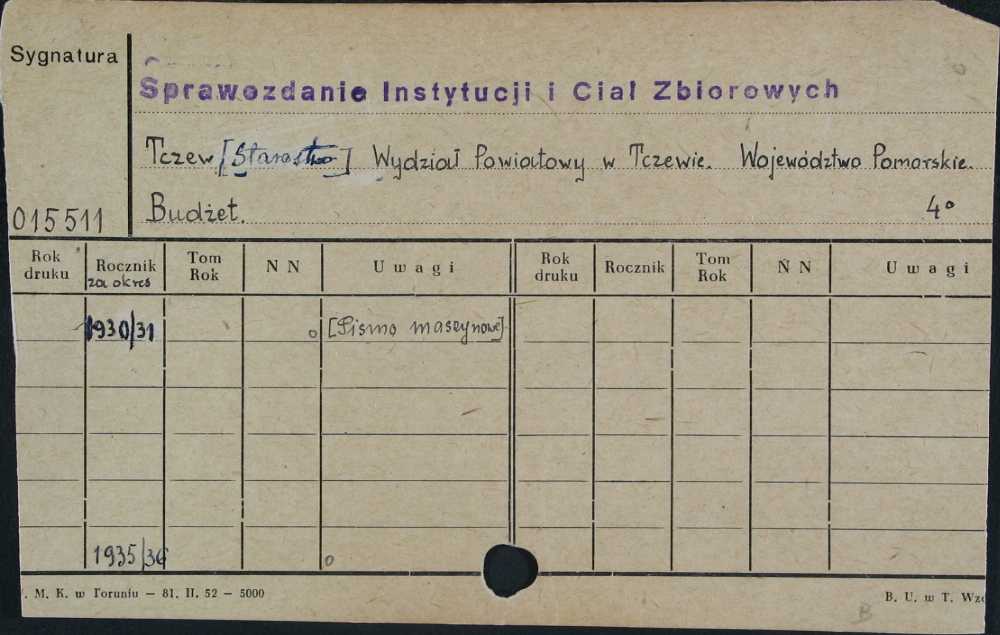 Sygnatura
Sprawozdanie Instytucji i Ciał Zbiorowych
Tczew [Starostwo] Wydział Powiatowy w Tczewie. Województwo Pomorskie.
Budżet. 4°
015511
Rok druku Rocznik za okres Tom Rok N N Uwagi Rok druku Rocznik Tom Rok N N Uwagi
1930/31 o [Pismo maszynowe]
1935/36 o
. M. K. w Toruniu – 81. II. 52 – 5000 B. U. w T. Wzó
B